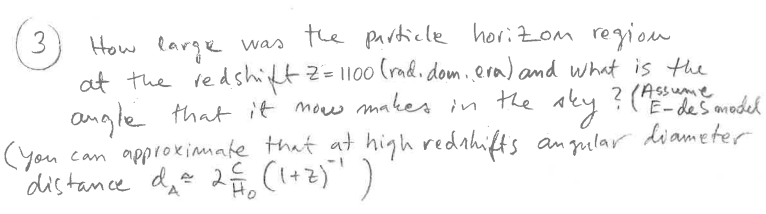 3 How large was the particle horizon region
at the redshift z = 1100 (rad. dom. era) and what is the
angle that it now makes in the sky ? (Assume E-deS model
(you can approximate that at high redshifts angular diameter
distance d_A ≈ 2 c/H₀ (1+z)⁻¹ )